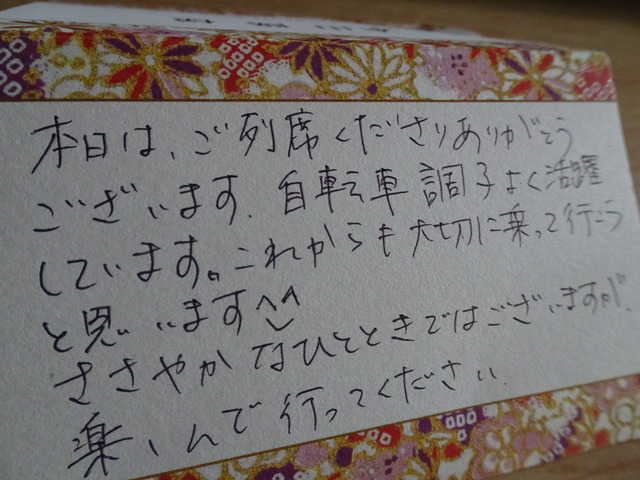 本日は、ご列席くださりありがとう
ございます。自転車調子よく活躍
しています。これからも大切に乗って行こう
と思います^^
ささやかなひとときではございますが、
楽しんで行ってください。